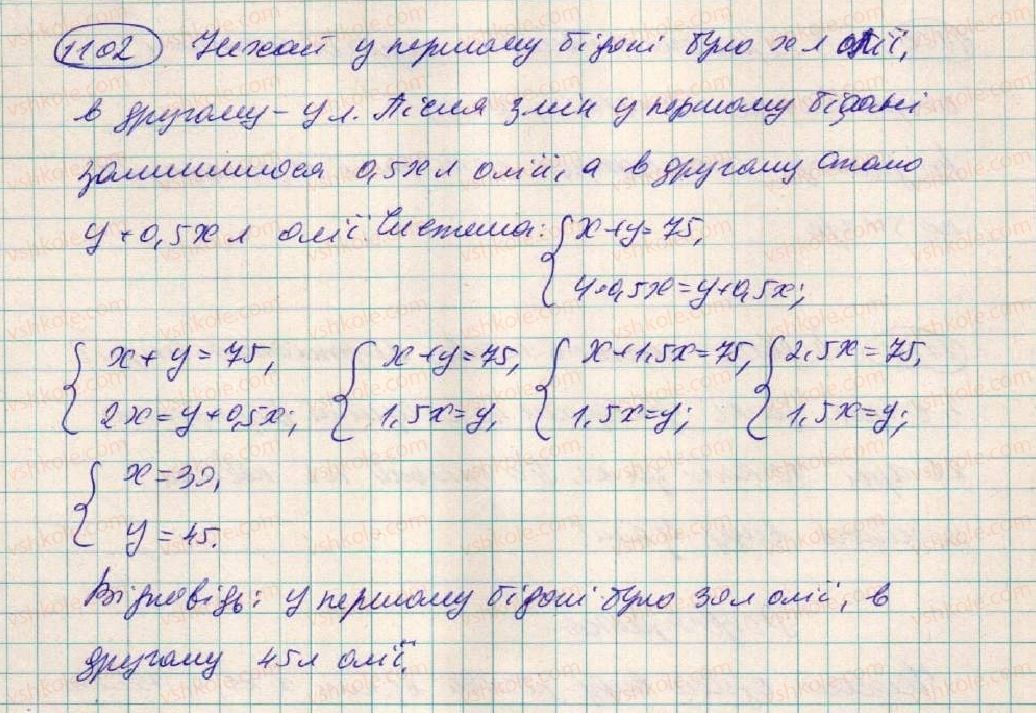 1102 Нехай у першому бідоні було x л олії,
в другому – y л. Після змін у першому бідоні
залишилося 0,5x л олії, а в другому стало
y + 0,5x л олії. Система: { x + y = 75,
4 · 0,5x = y + 0,5x;
{ x + y = 75, { x + y = 75, { x + 1,5x = 75, { 2,5x = 75,
2x = y + 0,5x; 1,5x = y, 1,5x = y; 1,5x = y;
{ x = 30,
y = 45.
Відповідь: у першому бідоні було 30л олії, в
другому 45л олії.